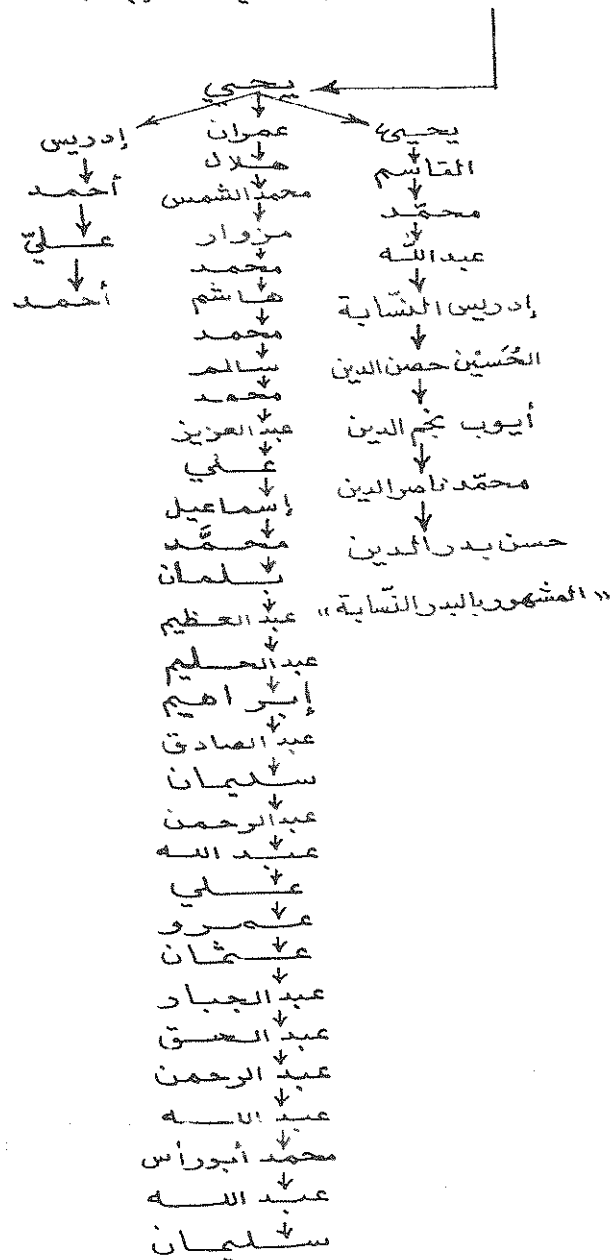 يحيي
يحيى
القاسم
محمّد
عبد اللّه
إدريس النسّابة
الحُسَيْن حصن الدين
أيوب نجم الدين
محمّد ناصر الدين
حسن بدر الدين
« المشهور بالبدر النسّابة »
عمران
هلال
محمد الشمس
مزوار
محمد
هاشم
محمد
سالم
محمد
عبد العزيز
علي
إسماعيل
محمَّد
بلمان
عبد العظيم
عبد الحليم
إبراهيم
عبد الصادق
سليمان
عبد الرحمن
عبد الله
علي
عمرو
عثمان
عبد الجبار
عبد الحق
عبد الرحمن
عبد الله
محمد أبوراس
عبد الله
سليمان
إدريس
أحمد
عليّ
أحمد